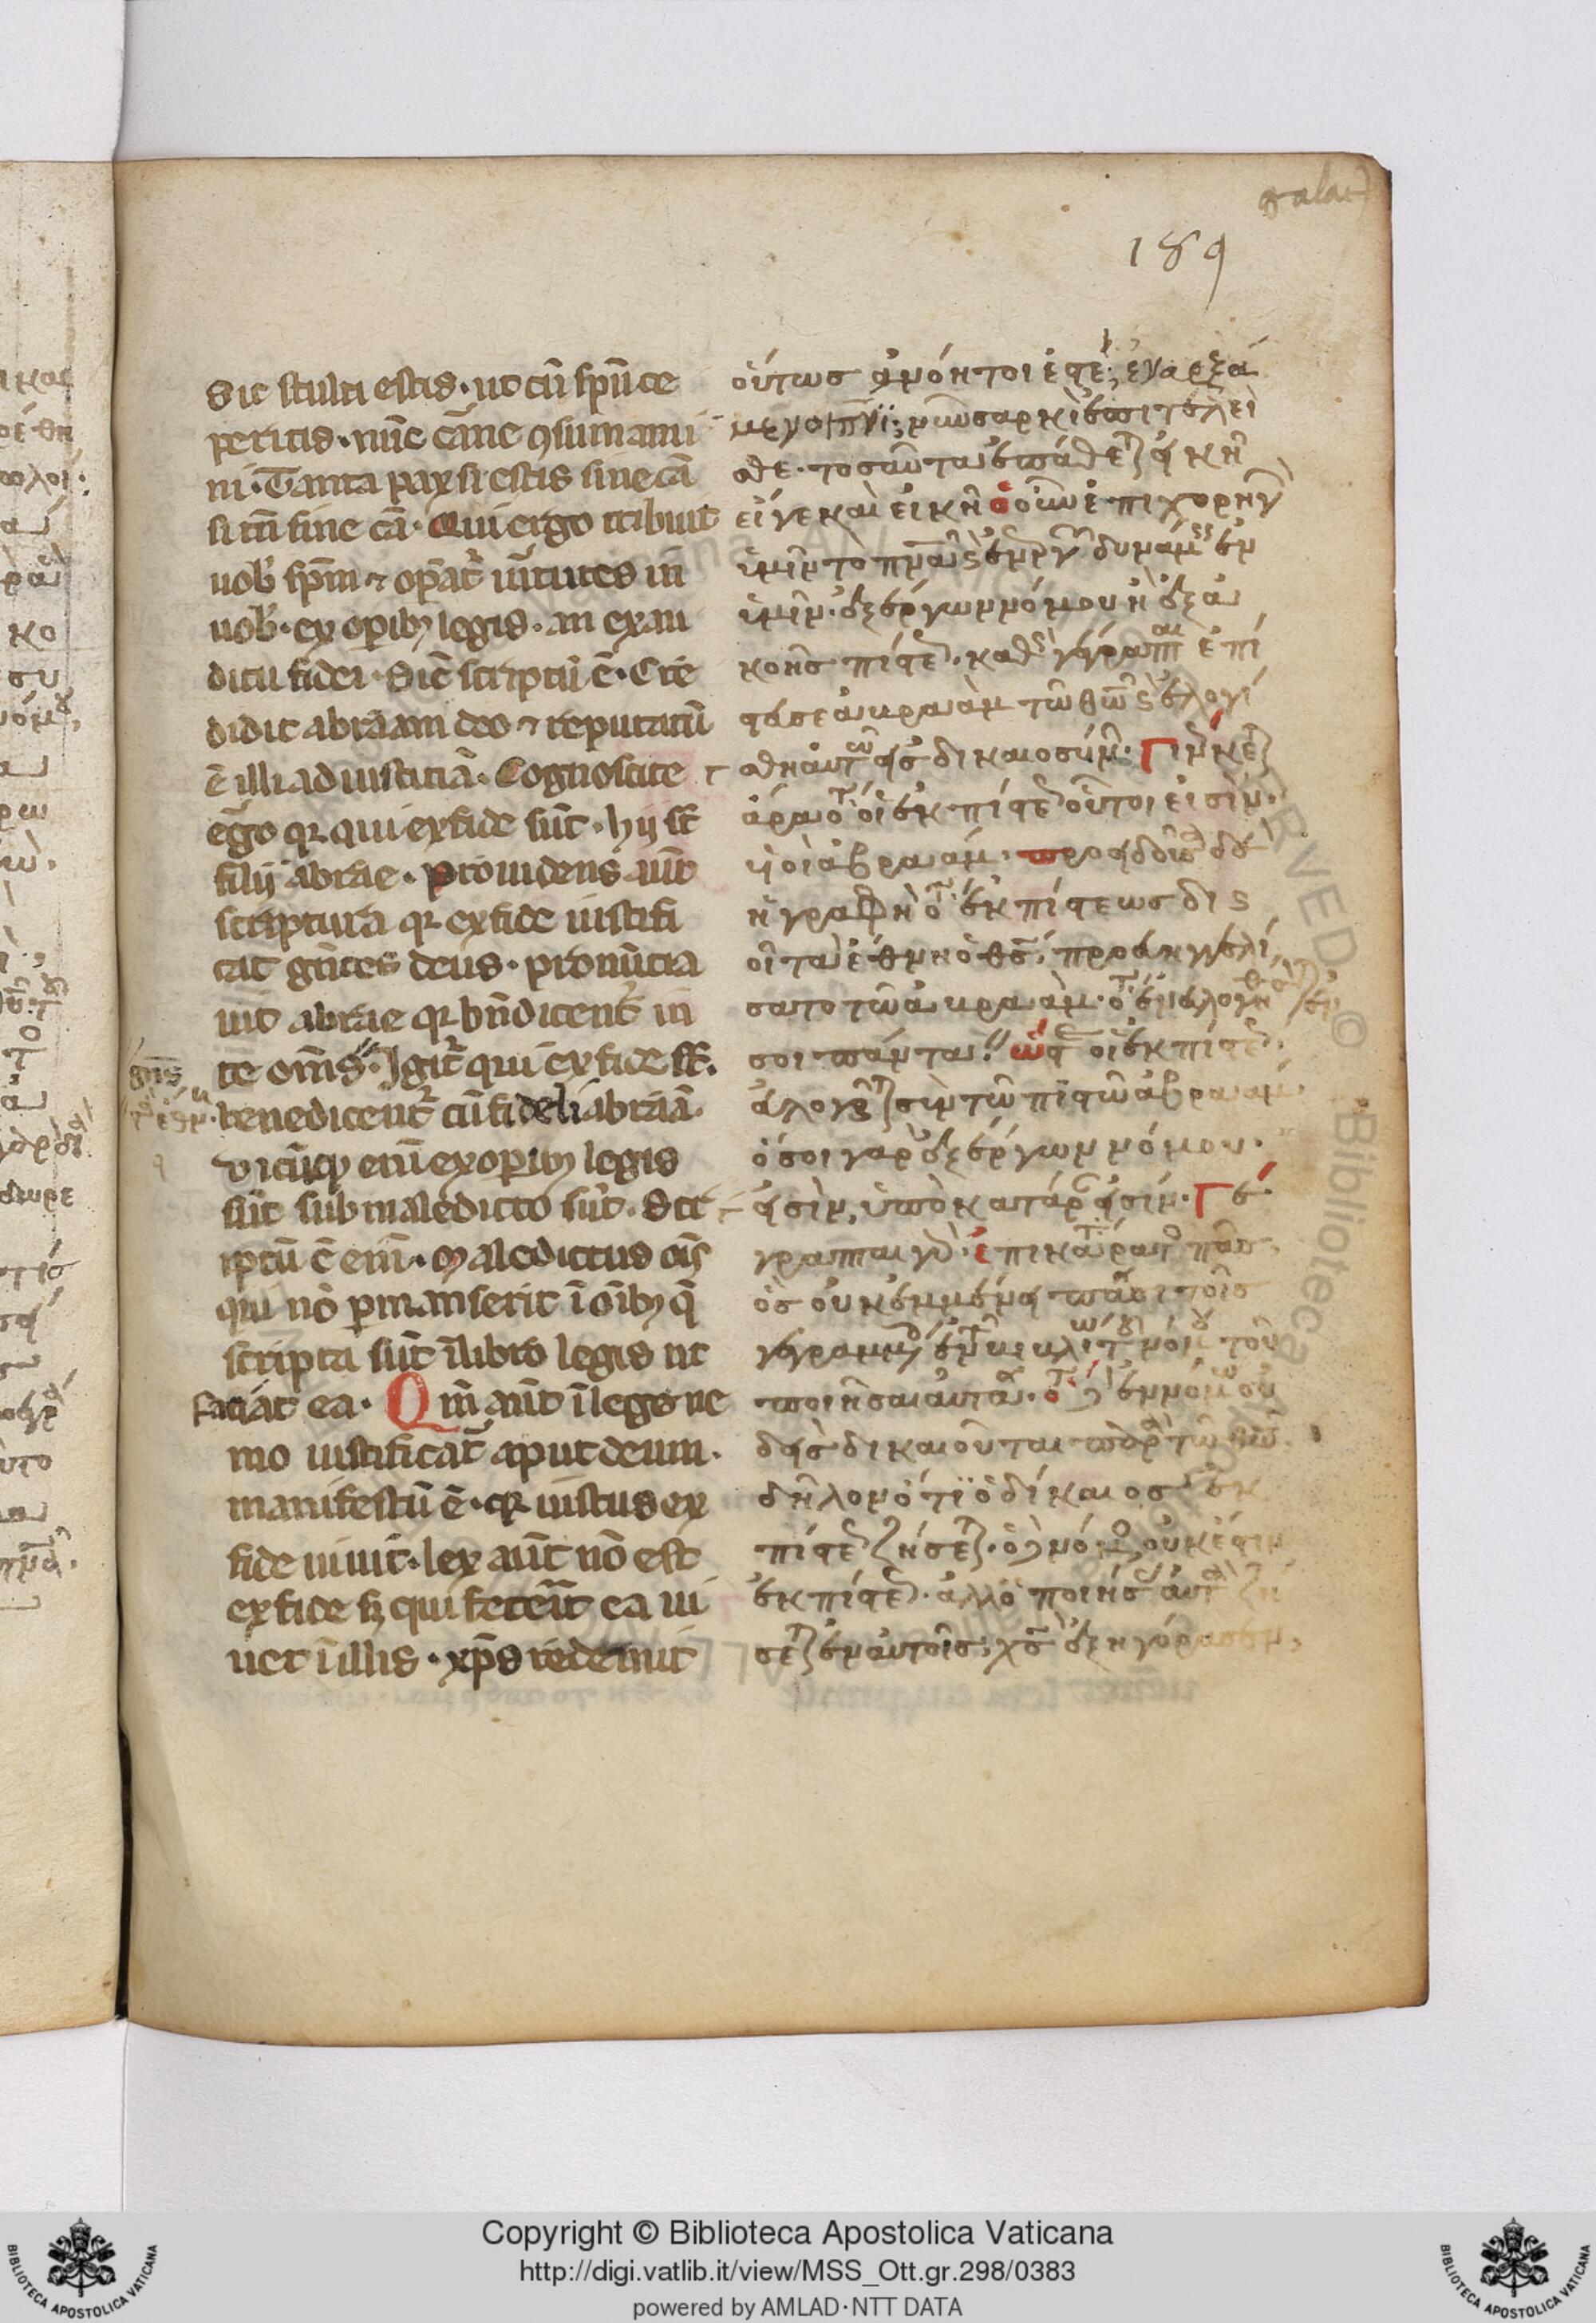 galat
189
Sic stulti estis · ut cū sp̄u ce
peritis · nūc carne ꝯsumami
ni · Tanta passi estis sine cā
si tn̄ sine cā · Qui ergo tribuit
uob̓ sp̄m ⁊ opat̓ uirtutes in
uob̓ · ex opib; legis · an exau
ditu fidei · Sic̄ scriptū ē · Cre
didit abraam deo ⁊ reputatū
ē illi ad iustitiā · Cognoscite
ego qꝛ qui ex fide sūt · hij st̄
filij abrae · prouidens aūt
scriptura qꝛ ex fide iustifi
cat gn̄tes deus · pronūtia
uit abrae qꝛ bn̄dicent̓ in
te om̄s · Igit̓ qui ex fide st̄ ·
benedicent̓ cū fideli abraā ·
enī ex opib; legis
sūt sub maledicto sūt · Sc
iptū ē enī · Maledictus
qui nō pmanserit ī oīb; q̄
scripta sūt ī libro legis ut
faciat ea · Qm̄ aūt ī lege ne
mo iustificat̓ aput deum ·
manifestū ē · qꝛ iustus ex
fide uiuit · lex aūt nō est
ex fide sꝫ qui fecerit ea ui
uet ī illis · xp̄s redemit
οὕτως ἀνόητοι ἐστέ· ἐναρξά
μενοι πνι· νῦν σαρκὶ ἐπιτελεῖ
σθε · τοσαῦτα ἐπάθετε εἰκῆ
εἴγε καὶ εἰκῆ ὁ οὖν ἐπιχορηγῶν
ὑμῖν τὸ πνα καὶ ἐνεργῶν δυνάμεις ἐν
ὑμῖν · ἐξ ἔργων νόμου ἢ ἐξ ἀ
κοῆς πίστεως · καθὼς γέγραπται ἐπί
στευσε ἀβραὰμ τῶ θῶ καὶ ἐλογί
σθη αὐτῶ εἰς δικαιοσύνην · Γινώσκετε
ἄρα ὅτι οἱ ἐκ πίστεως οὗτοι εἰσὶν
υἱοὶ ἀβραάμ · προϊδοῦσα δὲ
ἡ γραφὴ ὅτι ἐκ πίστεως δικαι
οῖ τὰ ἔθνη ὁ θς· προευηγγελί
σατο τῶ ἀβραάμ · ὅτι ἐνευλογηθήσονται ἐν
σοι πάντα τὰ ἔθνη · ὥστε οἱ ἐκ πίστεως
εὐλογοῦνται σὺν τῶ πιστῶ ἀβραάμ
ὅσοι γὰρ ἐξ ἔργων νόμου
εἰσὶν, ὑπὸ κατάραν εἰσίν · Γέ
γραπται γὰρ · ἐπικατάρατος πᾶς
ὃς οὐκ ἐμμένει πᾶσι τοῖς
γεγραμμένοις ἐν τῶ βιβλίω τοῦ νόμου τοῦ
ποιῆσαι αὐτά · ὅτι δὲ ἐν νόμω οὐ
δεὶς δικαιοῦται παρὰ τῶ θῶ
δῆλον ὅτι ὁ δίκαιος ἐκ
πίστεως ζήσεται · ὁ δὲ νόμος οὐκ ἔστιν
ἐκ πίστεως · ἀλλ᾽ ὁ ποιήσας αὐτὰ ζή
σεται ἐν αὐτοῖς· χς ἐξηγόρασεν,
Copyright © Biblioteca Apostolica Vaticana
http://digi.vatlib.it/view/MSS_Ott.gr.298/0383
powered by AMLAD·NTT DATA